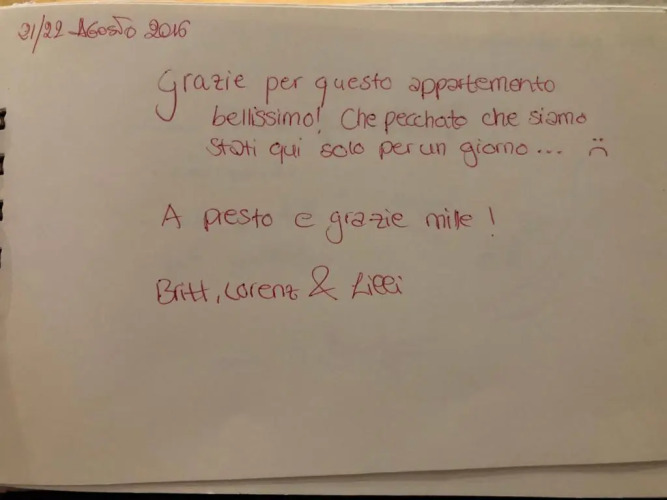 21/22 Agosto 2016
Grazie per questo appartemento
bellissimo! Che pecchato che siamo
stati qui solo per un giorno... :(
A presto e grazie mille!
Britt, Lorenz & Lilli